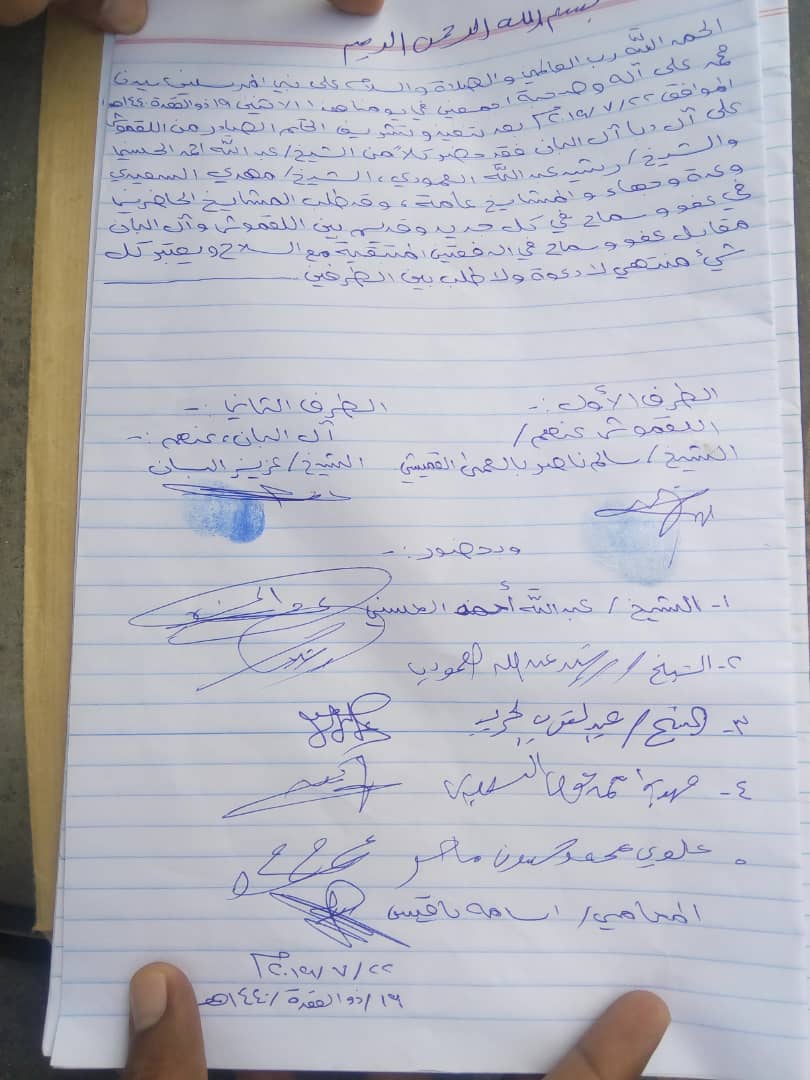 بسم الله الرحمن الرحيم
الحمد لله رب العالمين والصلاة والسلام على نبي المرسلين سيدنا
محمد على آله وصحبة اجمعين في يومنا هذا الاثنين ١٩ ذو القعدة ١٤٤٠هـ
الموافق ٢٢/٧/٢٠١٩م بعد تنفيذ وتشريف الحكم الصادر من اللقموش
على آل دبا آل البان فقد حضر كلاً من الشيخ/ عبدالله احمد الحسني
والشيخ/ رشيد عبدالله العمودي، الشيخ/ مهدي السعيدي
وعدة وجهاء والمشايخ عامة، وقد طلب المشايخ الحاضرين
في عفو وسماح في كل جديد وقديم بين اللقموش وآل البان
مقابل عفو وسماح في الدفعتين المتبقية مع السلاح ويعتبر كل
شيء منتهي لا دعوة ولا طلب بين الطرفين
الطرف الأول :- الطرف الثاني :-
اللقموش عنهم/ آل البان، عنهم :-
الشيخ/ سالم ناصر القميشي الشيخ/ عزيز البان
وبحضور :-
١- الشيخ/ عبدالله أحمد الحسني
٢- الشيخ/ رشيد عبدالله العمودي
٣- الشيخ/
٤- مهدي احمد السعيدي
علوي محمد
المحامي/ اسامه باقيس
٢٢/٧/٢٠١٩م
١٩/ذو القعدة/١٤٤٠هـ